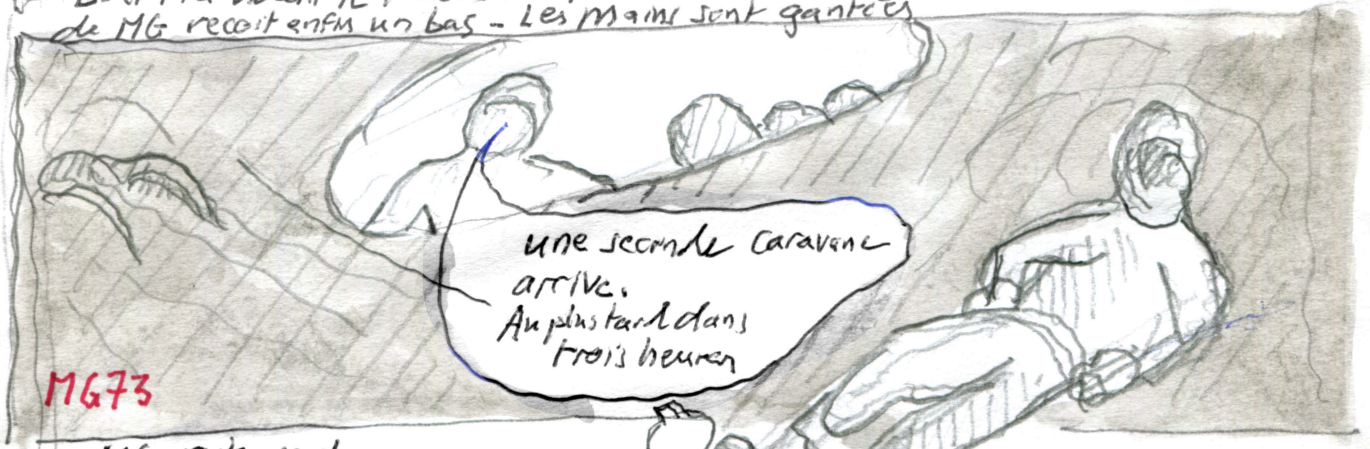 de MG reçoit enfin un bas - Les mains sont gantées
une seconde caravane
arrive.
Au plus tard dans
trois heures
MG73